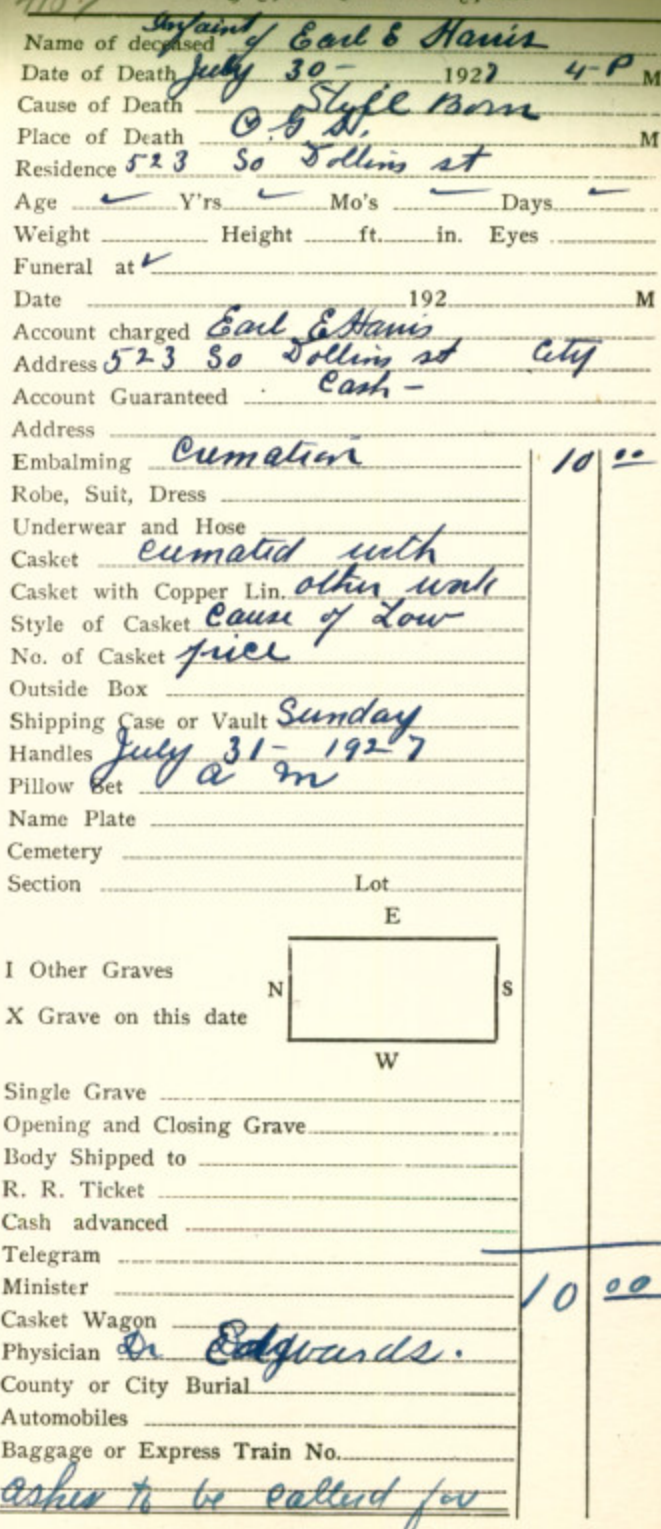 Infaint
Name of deceased of Earl E Harris
Date of Death July 30- 1927 4-P M
Cause of Death Styll Born
Place of Death O.G.H. M
Residence 523 So Dollins st
Age ✓ Y'rs ✓ Mo's ✓ Days ✓
Weight Height ft. in. Eyes
Funeral at ✓
Date 192 M
Account charged Earl E Harris
Address 523 So Dollins st City
Account Guaranteed Cash -
Address
Embalming Cremation 10 00
Robe, Suit, Dress
Underwear and Hose
Casket cremated with
Casket with Copper Lin. other work
Style of Casket Cause of Low
No. of Casket price
Outside Box
Shipping Case or Vault Sunday
Handles July 31- 1927
Pillow Set a m
Name Plate
Cemetery
Section Lot
E
I Other Graves
N S
X Grave on this date
W
Single Grave
Opening and Closing Grave
Body Shipped to
R. R. Ticket
Cash advanced
Telegram
Minister 10 00
Casket Wagon
Physician Dr Edgwards.
County or City Burial
Automobiles
Baggage or Express Train No.
ashes to be callend for